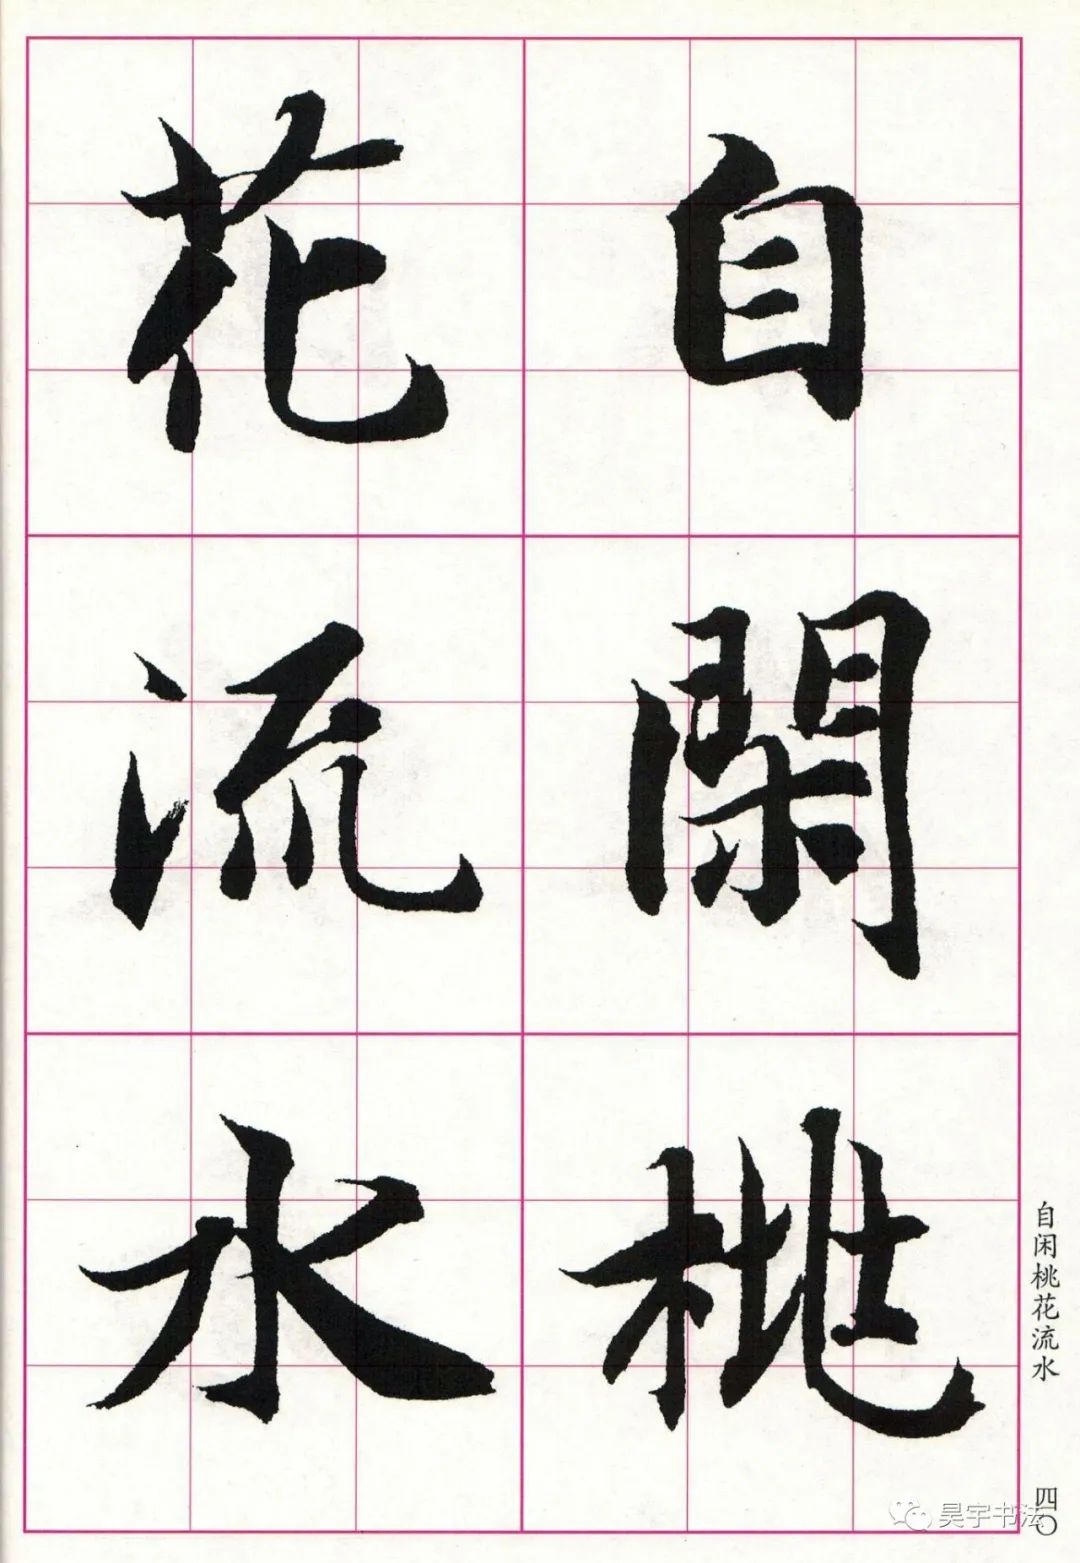 自閑桃
花流水
自闲桃花流水
四〇
昊宇书法